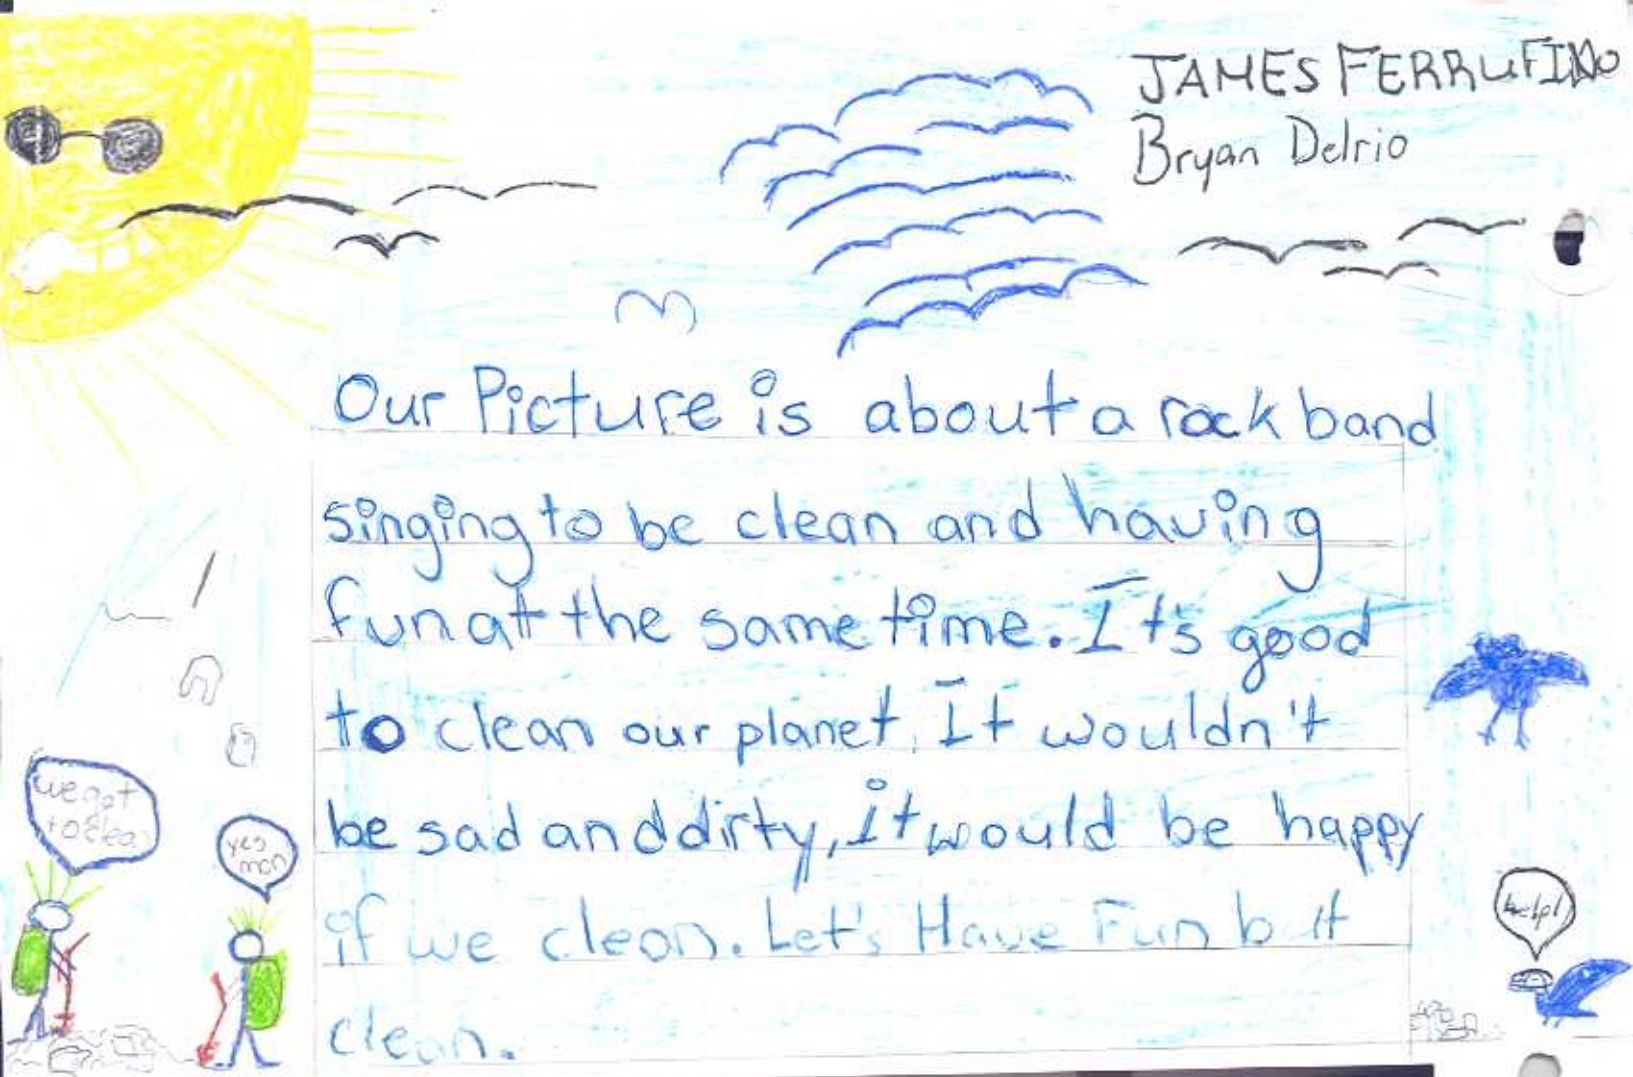 JAMES FERRUFINO
Bryan Delrio
Our Picture is about a rock band
singing to be clean and having
fun at the same time. It's good
to clean our planet. It wouldn't
be sad and dirty, it would be happy
if we clean. Let's Have Fun but
clean.
we got
to clea
yes
man
help!